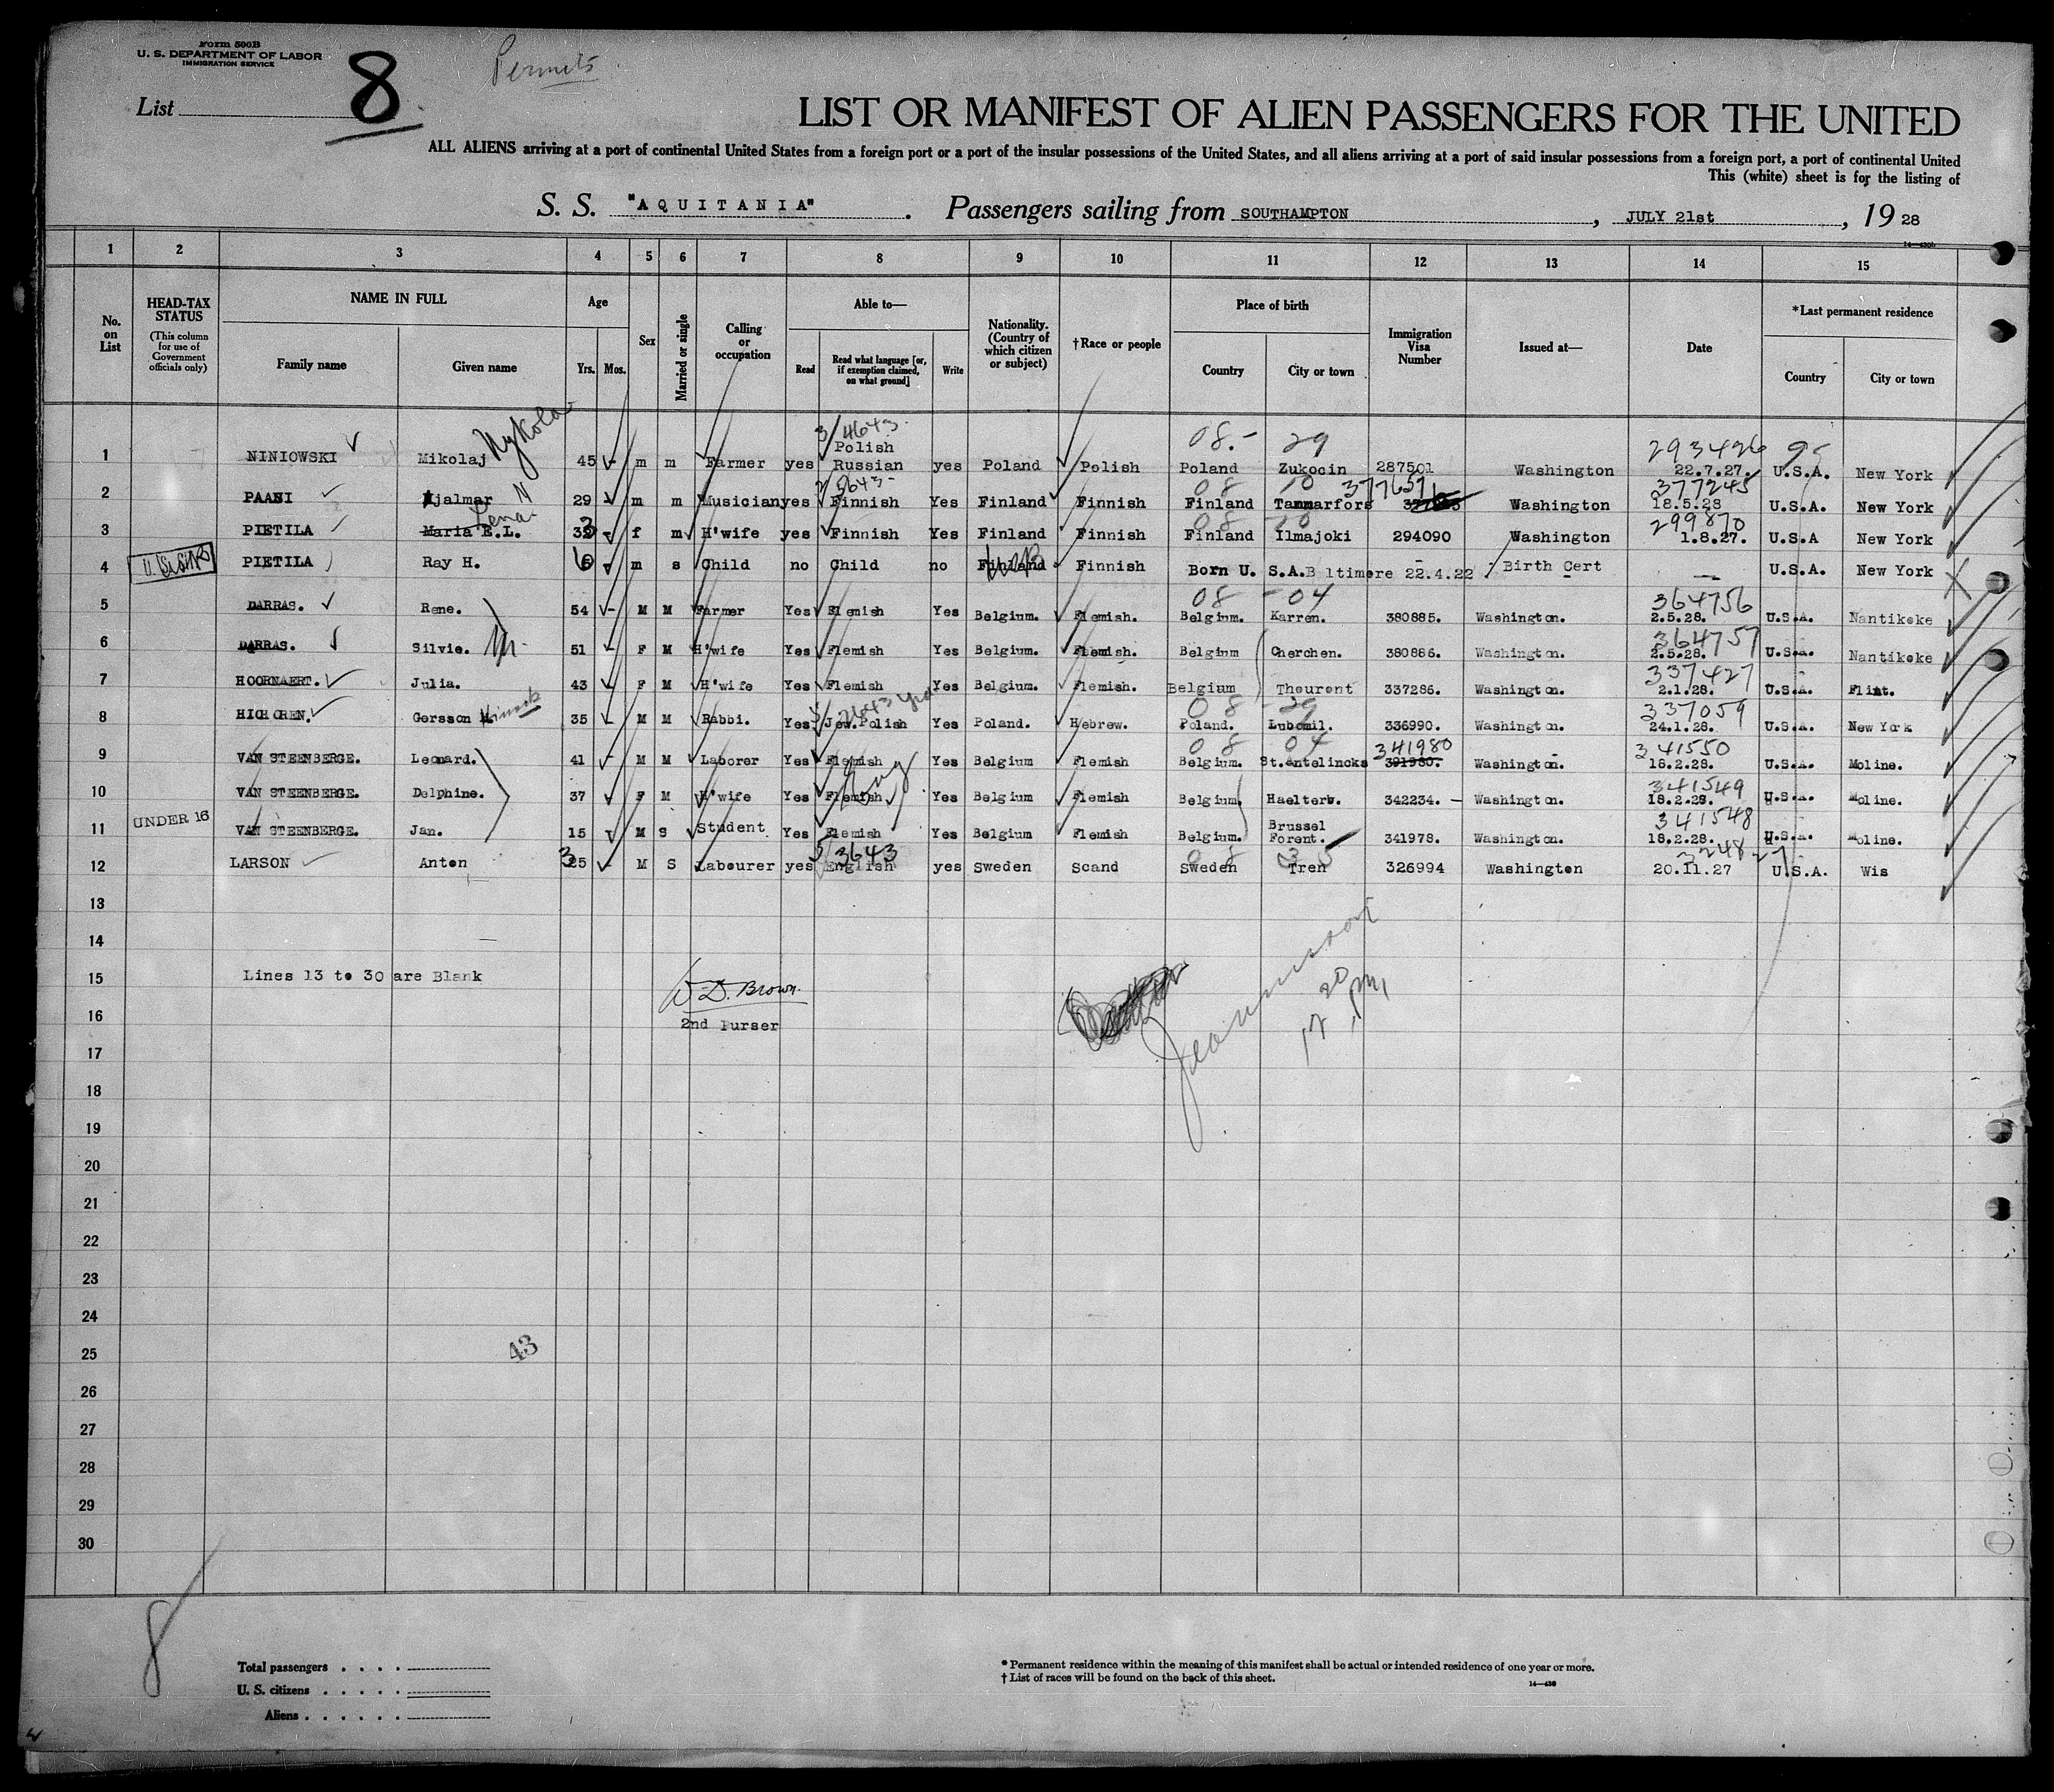 Form 500B
U. S. DEPARTMENT OF LABOR
IMMIGRATION SERVICE
Permits
List 8
LIST OR MANIFEST OF ALIEN PASSENGERS FOR THE UNITED
ALL ALIENS arriving at a port of continental United States from a foreign port or a port of the insular possessions of the United States, and all aliens arriving at a port of said insular possessions from a foreign port, a port of continental United
This (white) sheet is for the listing of
S. S. "AQUITANIA". Passengers sailing from SOUTHAMPTON, JULY 21st, 19 28
14—430b
1 2 3 4 5 6 7 8 9 10 11 12 13 14 15
No. on List
HEAD-TAX STATUS (This column for use of Government officials only)
NAME IN FULL
Family name
Given name
Age
Yrs. Mos.
Sex
Married or single
Calling or occupation
Able to—
Read
Read what language [or, if exemption claimed, on what ground]
Write
Nationality. (Country of which citizen or subject)
†Race or people
Place of birth
Country
City or town
Immigration Visa Number
Issued at—
Date
*Last permanent residence
Country
City or town
3/4643 08.- 29 293426
1 NINIOWSKI Mikolaj Nykola 45 - m m Farmer yes Polish Russian yes Poland Polish Poland Zukocin 287501 Washington 22.7.27. U.S.A. New York
3643- 08 10 377651 377245
2 PAASI Hjalmar N 29 m m Musician yes Finnish Yes Finland Finnish Finland Tammarfors Washington 18.5.28 U.S.A. New York
Lena 08 10 299870
3 PIETILA Maria E.L. 33 f m H'wife yes Finnish Yes Finland Finnish Finland Ilmajoki 294090 Washington 1.8.27. U.S.A New York
4 PIETILA Ray H. 6 m s Child no Child no Finland USB Finnish Born U. S.A. B ltimore 22.4.22 Birth Cert U.S.A. New York
08 - 04 364756
5 DARRAS. Rene. 54 - M M Farmer Yes Flemish Yes Belgium. Flemish. Belgium. Karren. 380885. Washington. 2.5.28. U.S.A. Nantikoke
364757
6 DARRAS. Silvie. 51 - F M H'wife Yes Flemish Yes Belgium. Flemish. Belgium Cherchen. 380886. Washington. 2.5.28. U.S.A. Nantikoke
337427
7 HOORNAERT. Julia. 43 F M H'wife Yes Flemish Yes Belgium. Flemish. Belgium Thourout 337286. Washington. 2.1.28. U.S.A. Flint.
2643 Yid 08 29 337059
8 HICHOREN. Gersson 35 - M M Rabbi. Yes Jew.Polish Yes Poland. Hebrew. Poland. Lubomil. 336990. Washington. 24.1.28. U.S.A. New York
08 04 341980 341550
9 VAN STEENBERGE. Leonard. 41 - M M Laborer Yes Flemish Yes Belgium Flemish Belgium. St.Antelincks 391980. Washington. 18.2.28. U.S.A. Moline.
Eng 341549
10 VAN STEENBERGE. Delphine. 37 F M H'wife Yes Flemish Yes Belgium Flemish Belgium Haelterb. 342234. - Washington. 18.2.28. U.S.A. Moline.
341548
11 UNDER 16 VAN STEENBERGE. Jan. 15 M S Student Yes Flemish Yes Belgium Flemish Belgium. Brussel Forent. 341978. Washington. 18.2.28. U.S.A. Moline.
5/3643 08 35
12 LARSON Anton 35 - M S Labourer yes English yes Sweden Scand Sweden Tren 326994 Washington 20.11.27 U.S.A. Wis
13
14
15 Lines 13 to 30 are Blank
W. D. Brown.
16 2nd Purser
17
18
19
20
21
22
23
24
25 43
26
27
28
29
30
8
Total passengers
U. S. citizens
Aliens
* Permanent residence within the meaning of this manifest shall be actual or intended residence of one year or more.
† List of races will be found on the back of this sheet.
14—430